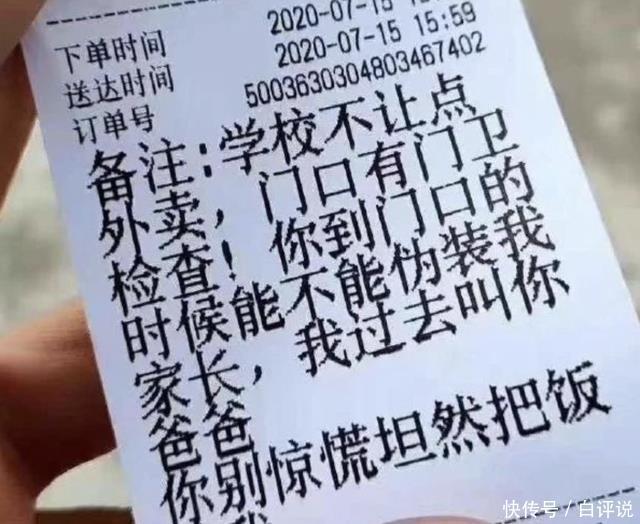 下单时间 2020-07-15
送达时间 2020-07-15 15:59
订单号 5003630304803467402
备注:学校不让点
外卖,门口有门卫
检查!你到门口的
时候能不能伪装我
家长,我过去叫你
爸爸
你别惊慌坦然把饭
快传号/白评说